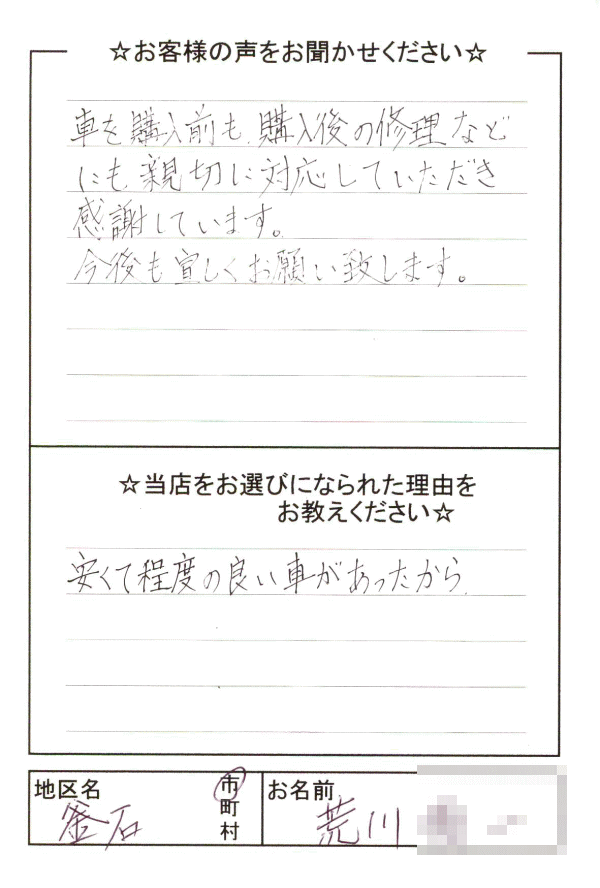 ☆お客様の声をお聞かせください☆
車を購入前も、購入後の修理など
にも、親切に対応していただき
感謝しています。
今後も宜しくお願い致します。
☆当店をお選びになられた理由を
お教えください☆
安くて程度の良い車があったから.
地区名
釜石
市
町
村
お名前
荒川